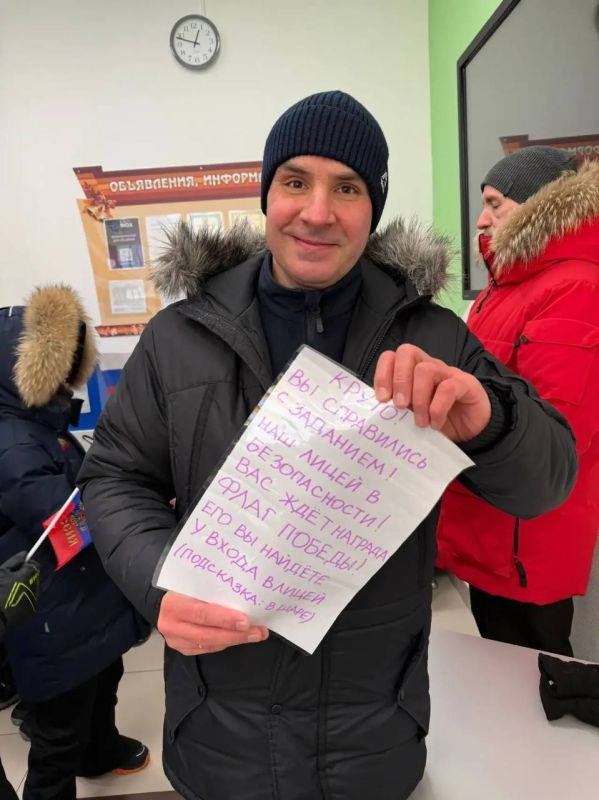 ОБЪЯВЛЕНИЯ, ИНФОРМА
КРУТО!
ВЫ СПРАВИЛИСЬ
С ЗАДАНИЕМ!
НАШ ЛИЦЕЙ В
БЕЗОПАСНОСТИ!
ВАС ЖДЁТ НАГРАДА
ФЛАГ ПОБЕДЫ!
ЕГО ВЫ НАЙДЁТЕ
У ВХОДА В ЛИЦЕЙ
(ПОДСКАЗКА: В ШАРЕ)